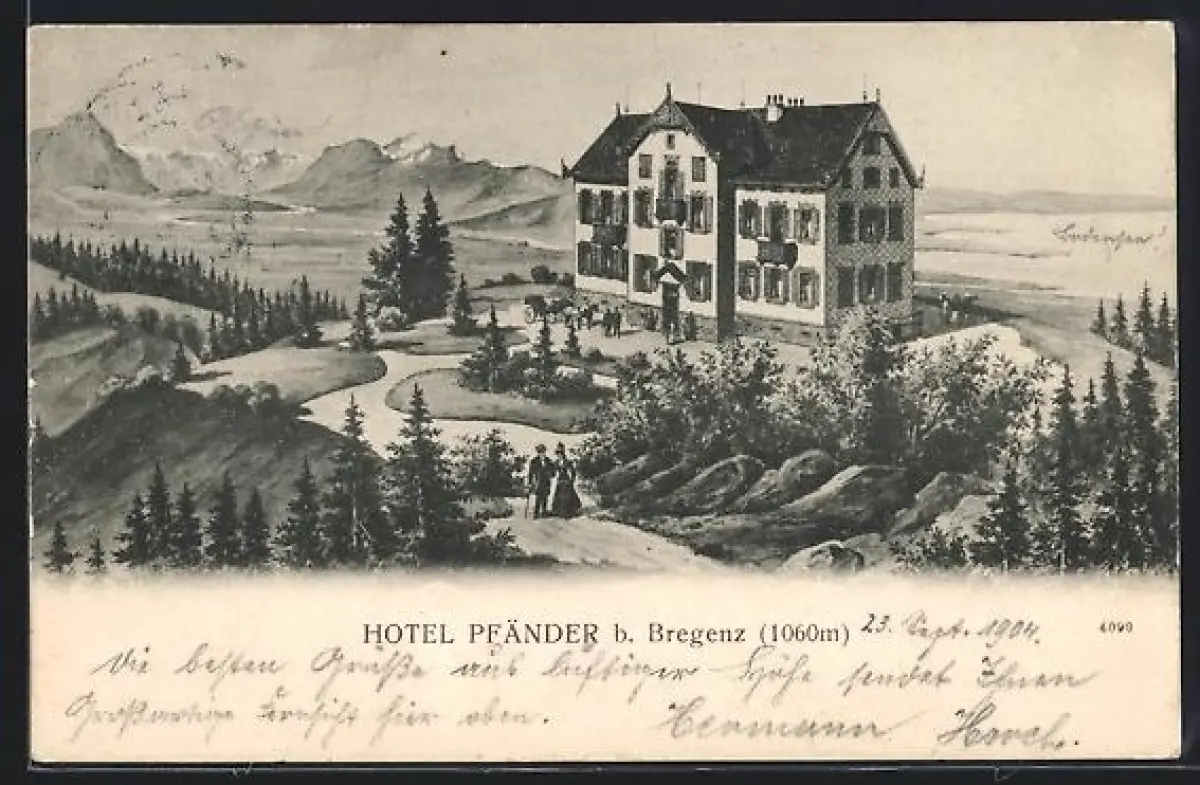 Bodensee!
HOTEL PFÄNDER b. Bregenz (1060m) 23. Sept. 1904.
4090
Die besten Grüße aus luftiger Höhe sendet Ihnen
Großartige Fernsicht hier oben. Hermann